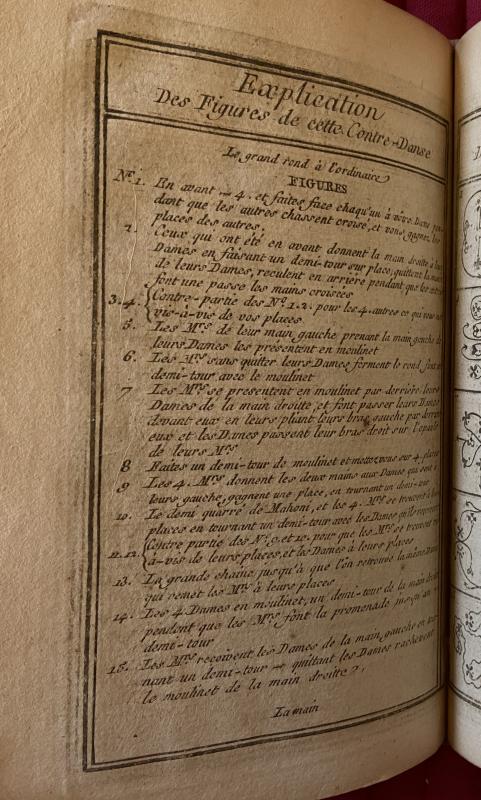 Explication
Des Figures de cette Contre-Danse
Le grand rond à l'ordinaire
FIGURES
Nº. 1. En avant 4. et faites face chaqu'un à vôtre Dame pen-
dant que les autres chassent croisé, et vous gagnez les
places des autres.
2. Ceux qui ont été en avant donnent la main droitte à leurs
Dames en faisant un demi-tour sur place, quittent la main
de leurs Dames, reculent en arrière pendant que les
font une passe les mains croisées
3. 4. Contre-partie des Nº. 1. 2. pour les 4. autres ce qui vous
vis-à-vis de vos places
5. Les Mrs. de leur main gauche prenant la main gauche de
leurs Dames les présentent en moulinet
6. Les Mrs. sans quitter leurs Dames ferment le rond font
demi-tour avec le moulinet
7 Les Mrs. se presentent en moulinet par derrière leurs
Dames de la main droitte, et font passer leurs Dames
devant eux en leurs pliant leurs bras gauche par derrière
eux et les Dames passent leur bras droit sur l'epaule
de leurs Mrs.
8 Faites un demi-tour de moulinet et mettez vous sur 4. places
9 Les 4. Mrs. donnent les deux mains aux Dames qui sont à
leurs gauche, gagnent une place, en tournant un demi-tour
10. Le demi quarré de Mahoni, et les 4. Mrs. se trouvent à leurs
places en tournant un demi-tour avec les Dames qu'ils
11. 12. Contre partie des Nº. 9. et 10. pour que les Mrs. se trouvent vis
à-vis de leurs places, et les Dames à leurs places
13. La grande chaine jusqu'à que l'on retrouve la même Dame
qui remet les Mrs. à leurs places
14. Les 4. Dames en moulinet, un demi-tour de la main droitte
pendent que les Mrs. font la promenade jusqu'au
demi-tour
15. Les Mrs. reçoivent les Dames de la main gauche en
nant un demi-tour quittant les Dames
le moulinet de la main droitte
La main